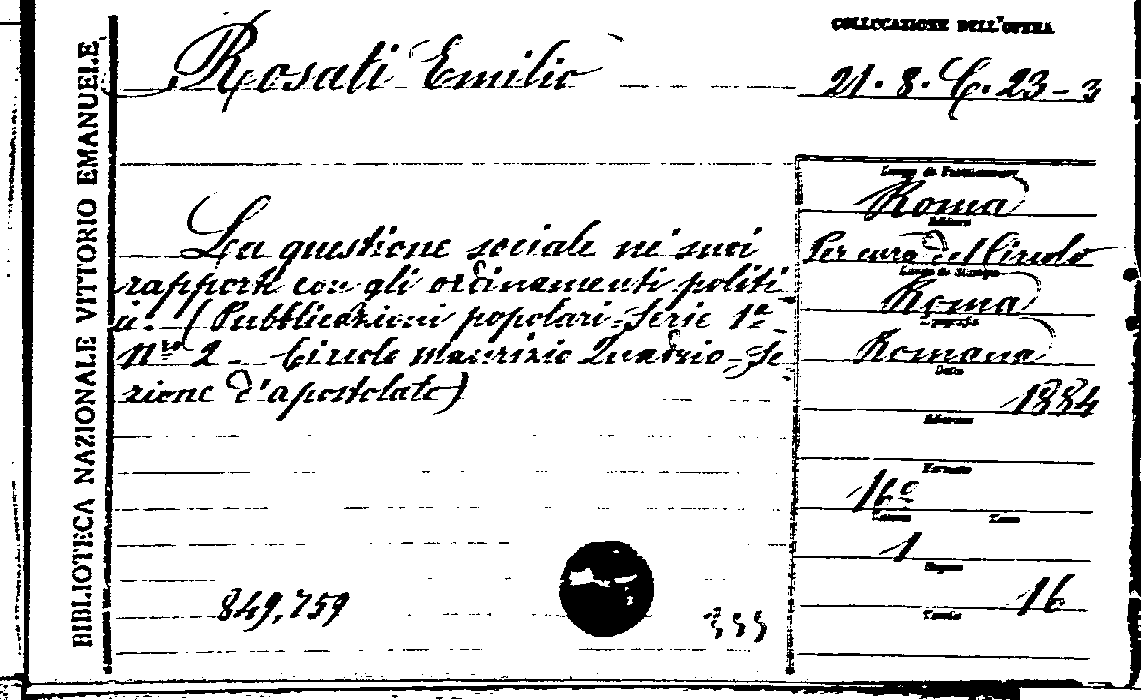 BIBLIOTECA NAZIONALE VITTORIO EMANUELE
COLLOCAZIONE DELL'OPERA
Rosati Emilio
21. 8. C. 23-3
La questione sociale ne' suoi
rapporti con gli ordinamenti politi-
ci. (Pubblicazioni popolari - Serie 1ª -
Nº 2 - Circolo Maurizio Quadrio - Se-
zione d'apostolato)
849,759
Luogo di Pubblicazione
Roma
Editore
Per cura del Circolo
Luogo di Stampa
Roma
Tipografia
Romana
Data
1884
Edizione
Formato
16º
Volume Tomo
1
Pagine
16
Tavole